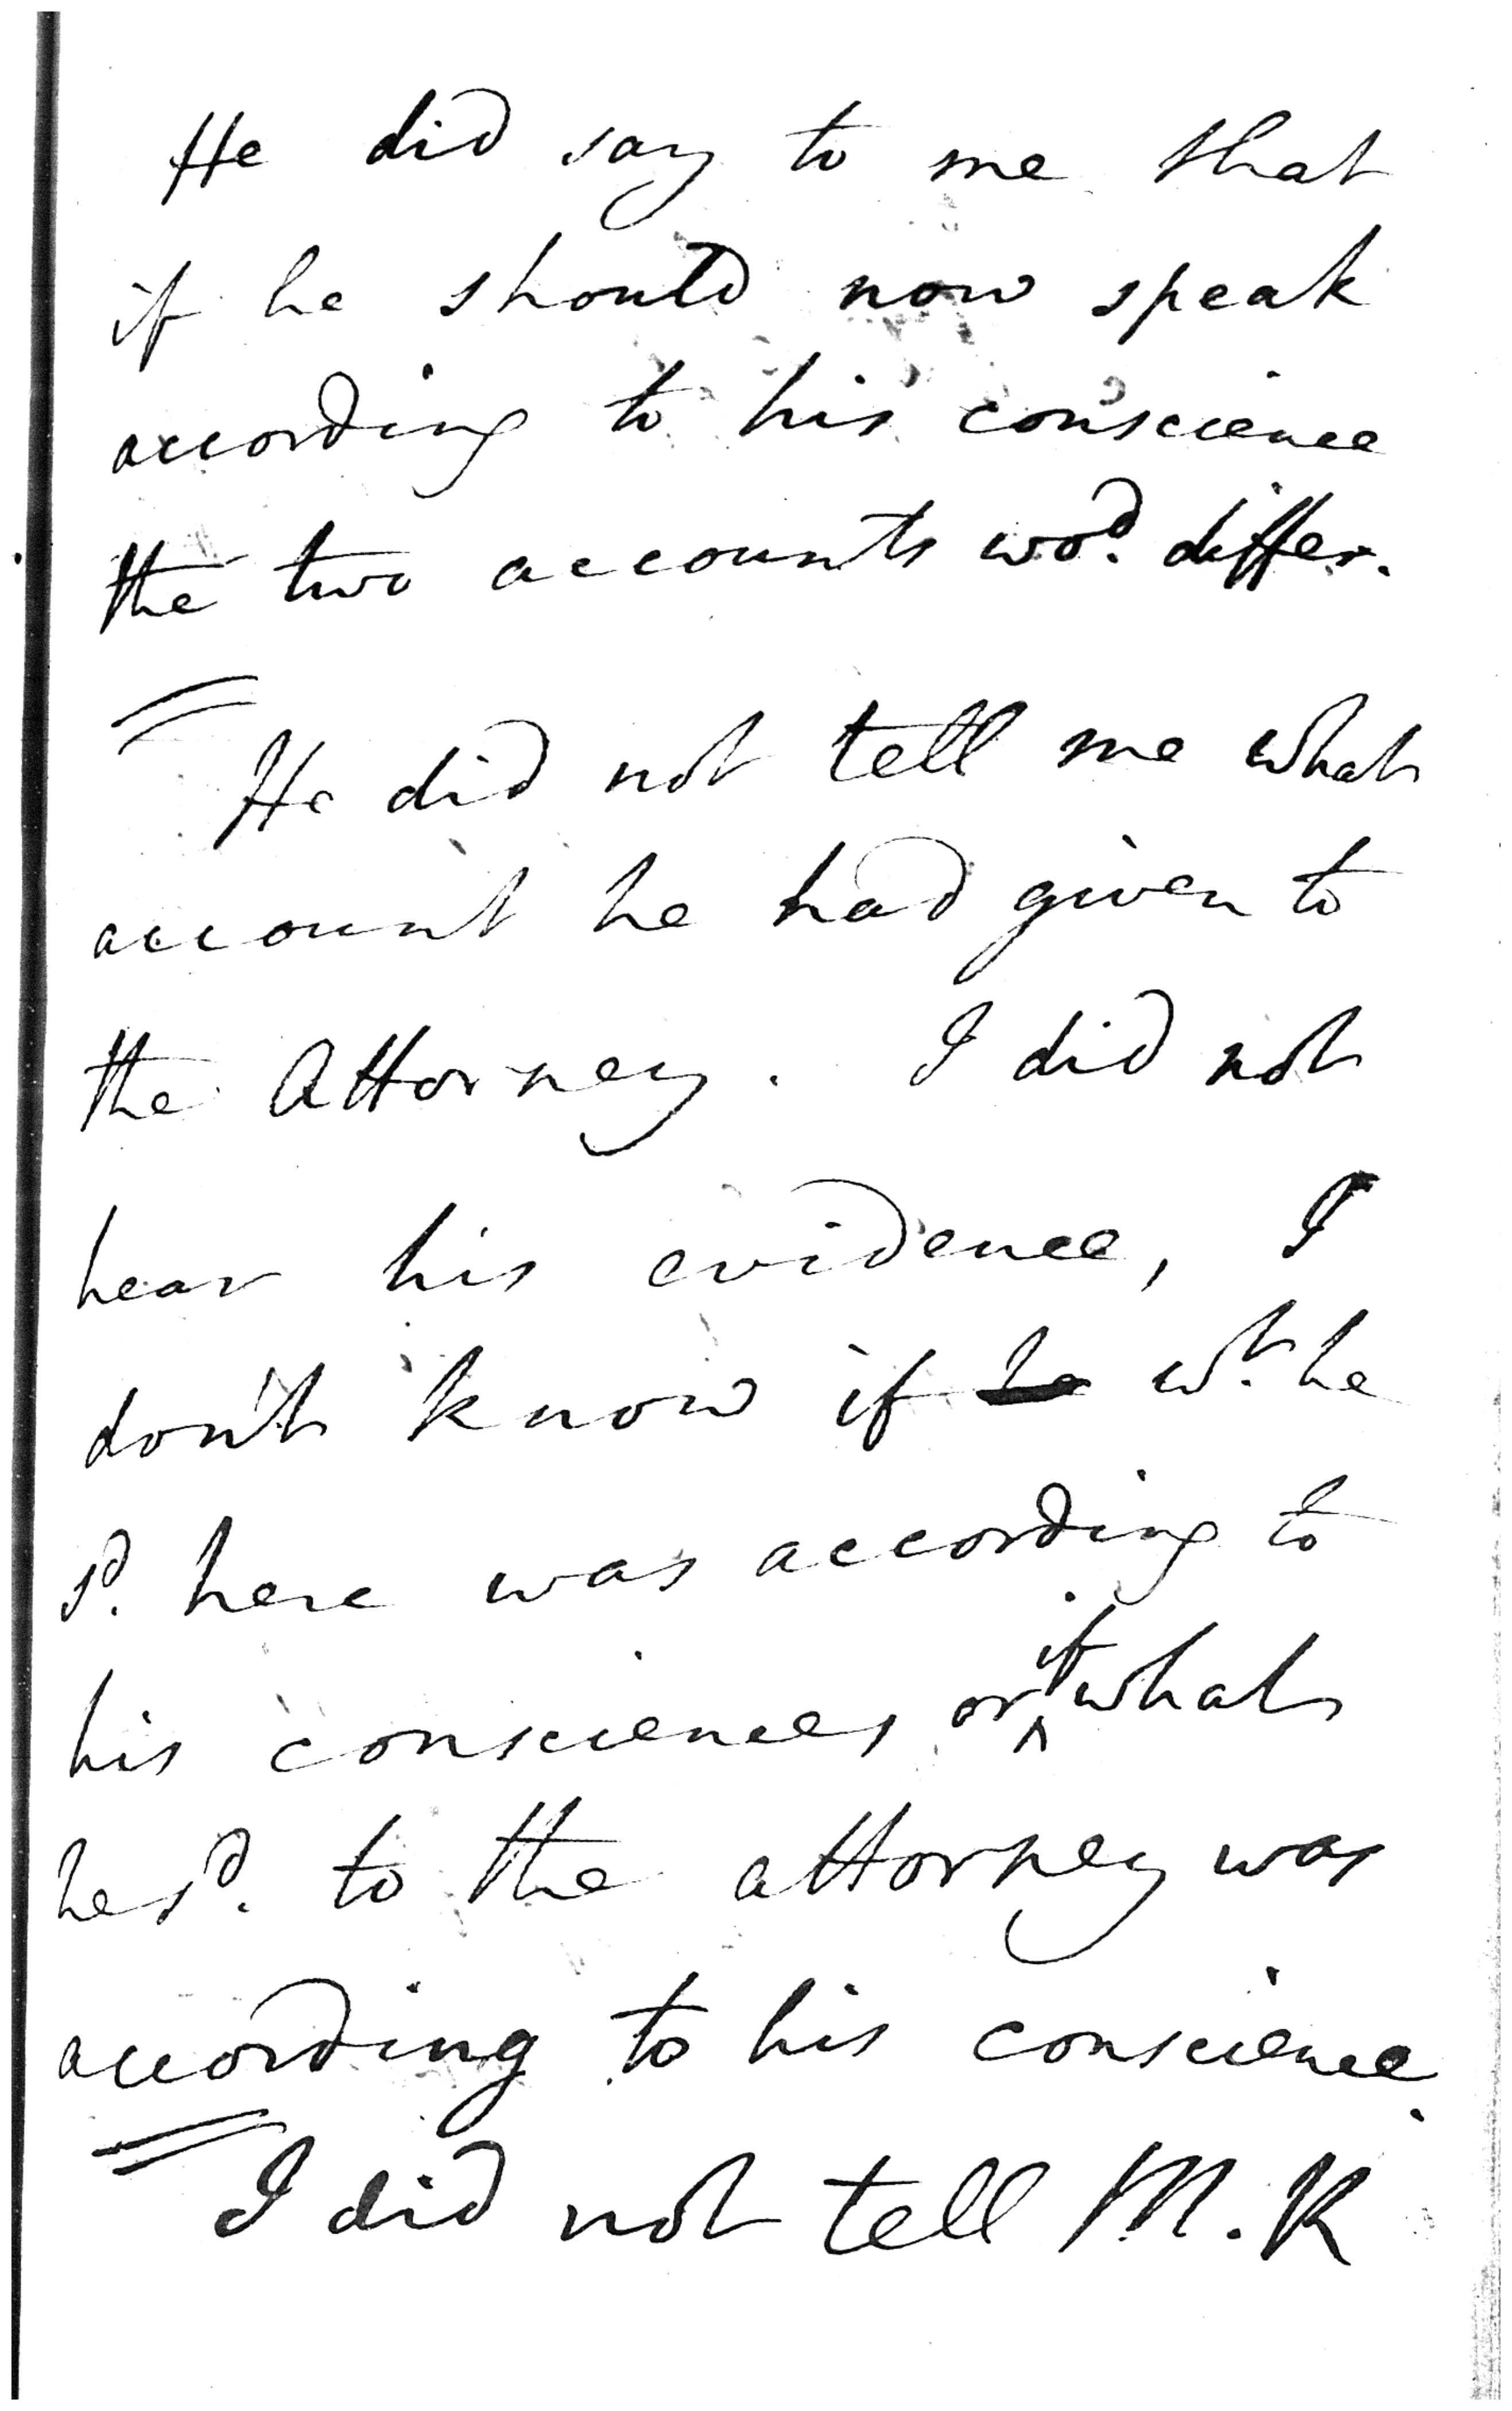 He did say to me that
if he should now speak
according to his conscience
the two accounts wod. differ.
He did not tell me what
account he had given to
the Attorney. I did not
hear his evidence, I
don't know if he wt. he
sd. here was according to
his consciences or if what
he sd. to the attorney was
according to his conscience.
I did not tell M. K